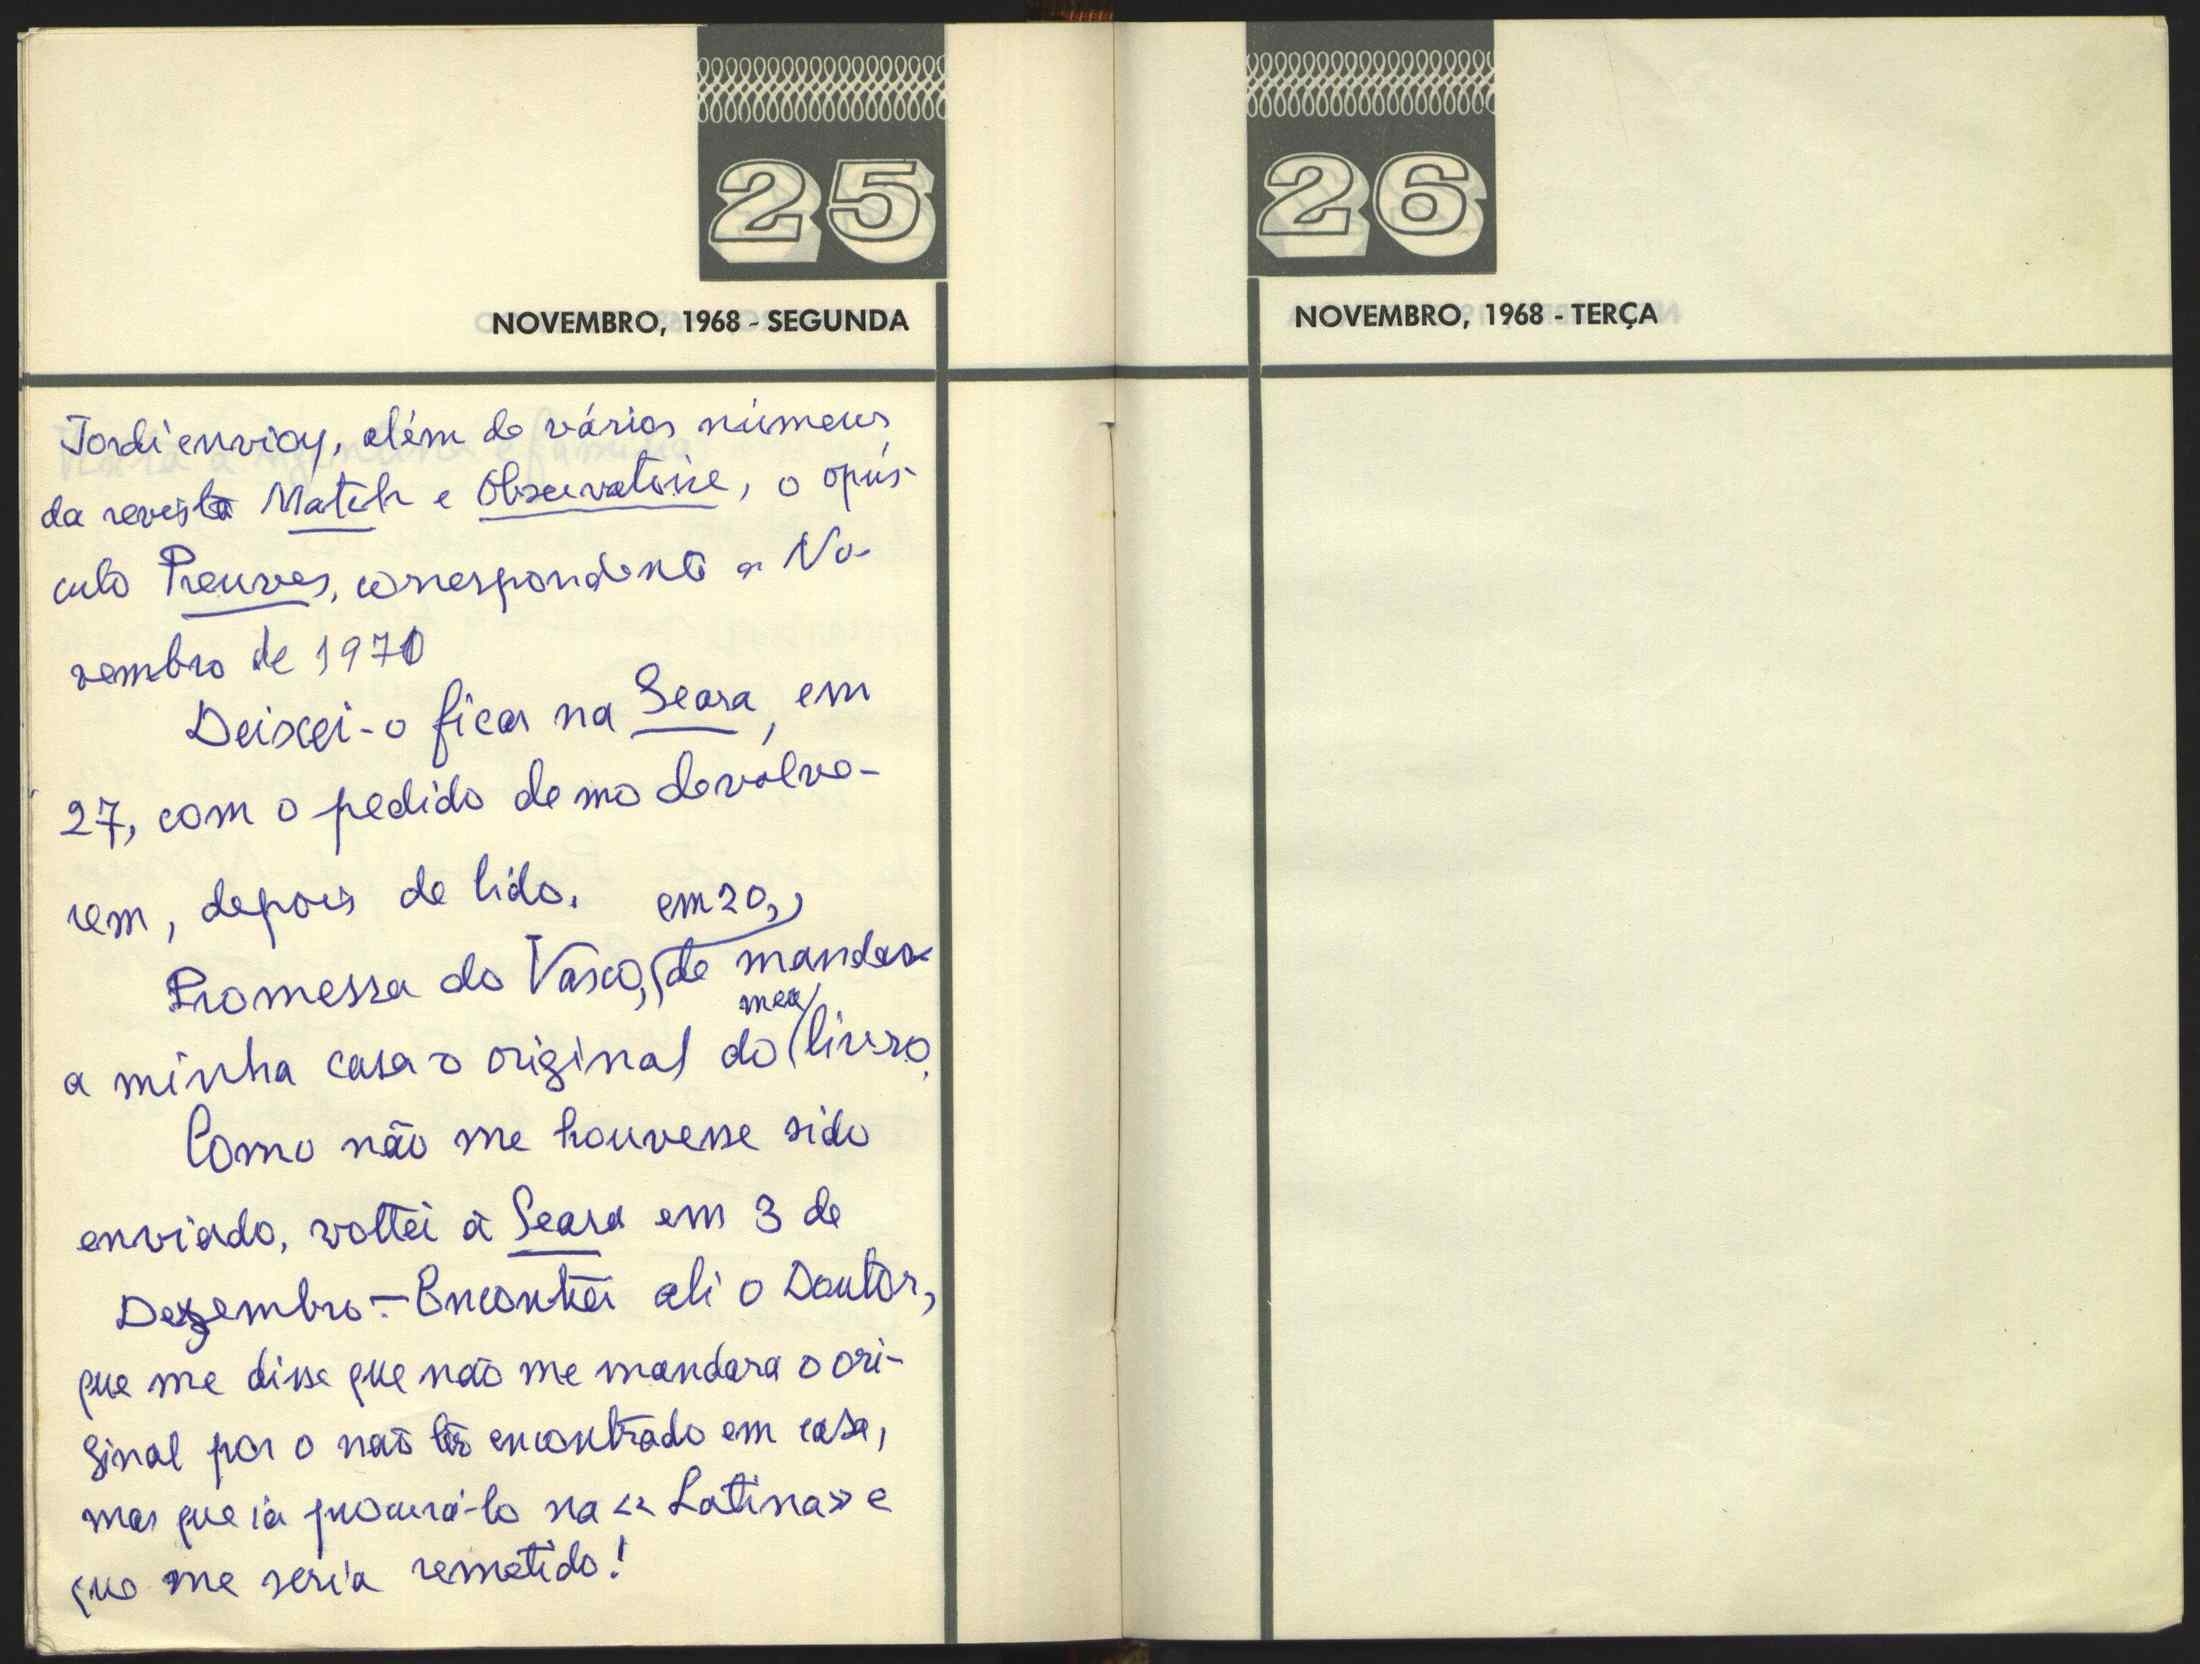 25
NOVEMBRO, 1968 - SEGUNDA
Jordi enviou, além de vários números
da revista Match e Observatoire, o opús-
culo Preuves, correspondente a No-
vembro de 1970
Deixei-o ficar na Seara, em
27, com o pedido de mo devolve-
rem, depois de lido.
em 20,
Promessa do Vasco, de mandar
meu
a minha casa o original do livro.
Como não me houvesse sido
enviado, voltei à Seara em 3 de
Dezembro - Encontrei ali o Doutor,
que me disse que não me mandara o ori-
ginal por o não ter encontrado em casa,
mas que ia procurá-lo na «Latina» e
que me seria remetido!
26
NOVEMBRO, 1968 - TERÇA